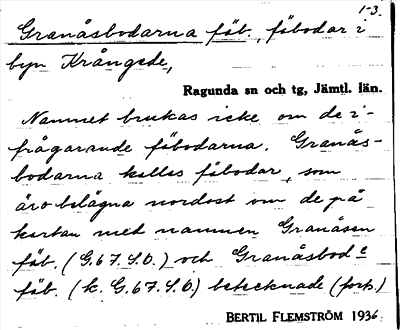 1-3.
Granåsbodarna fäb., fäbodar i
byn Krångede,
Ragunda sn och tg, Jämtl. län.
Namnet brukas icke om de i-
frågarande fäbodarna. Granås-
bodarna kallas fäbodar, som
äro belägna nordost om de på
kartan med namnen Granåsen
fäb. (G.67.S.O.) och Granåsbode
fäb. (k. G.67.S.O.) betecknade (forts.)
BERTIL FLEMSTRÖM 1936.